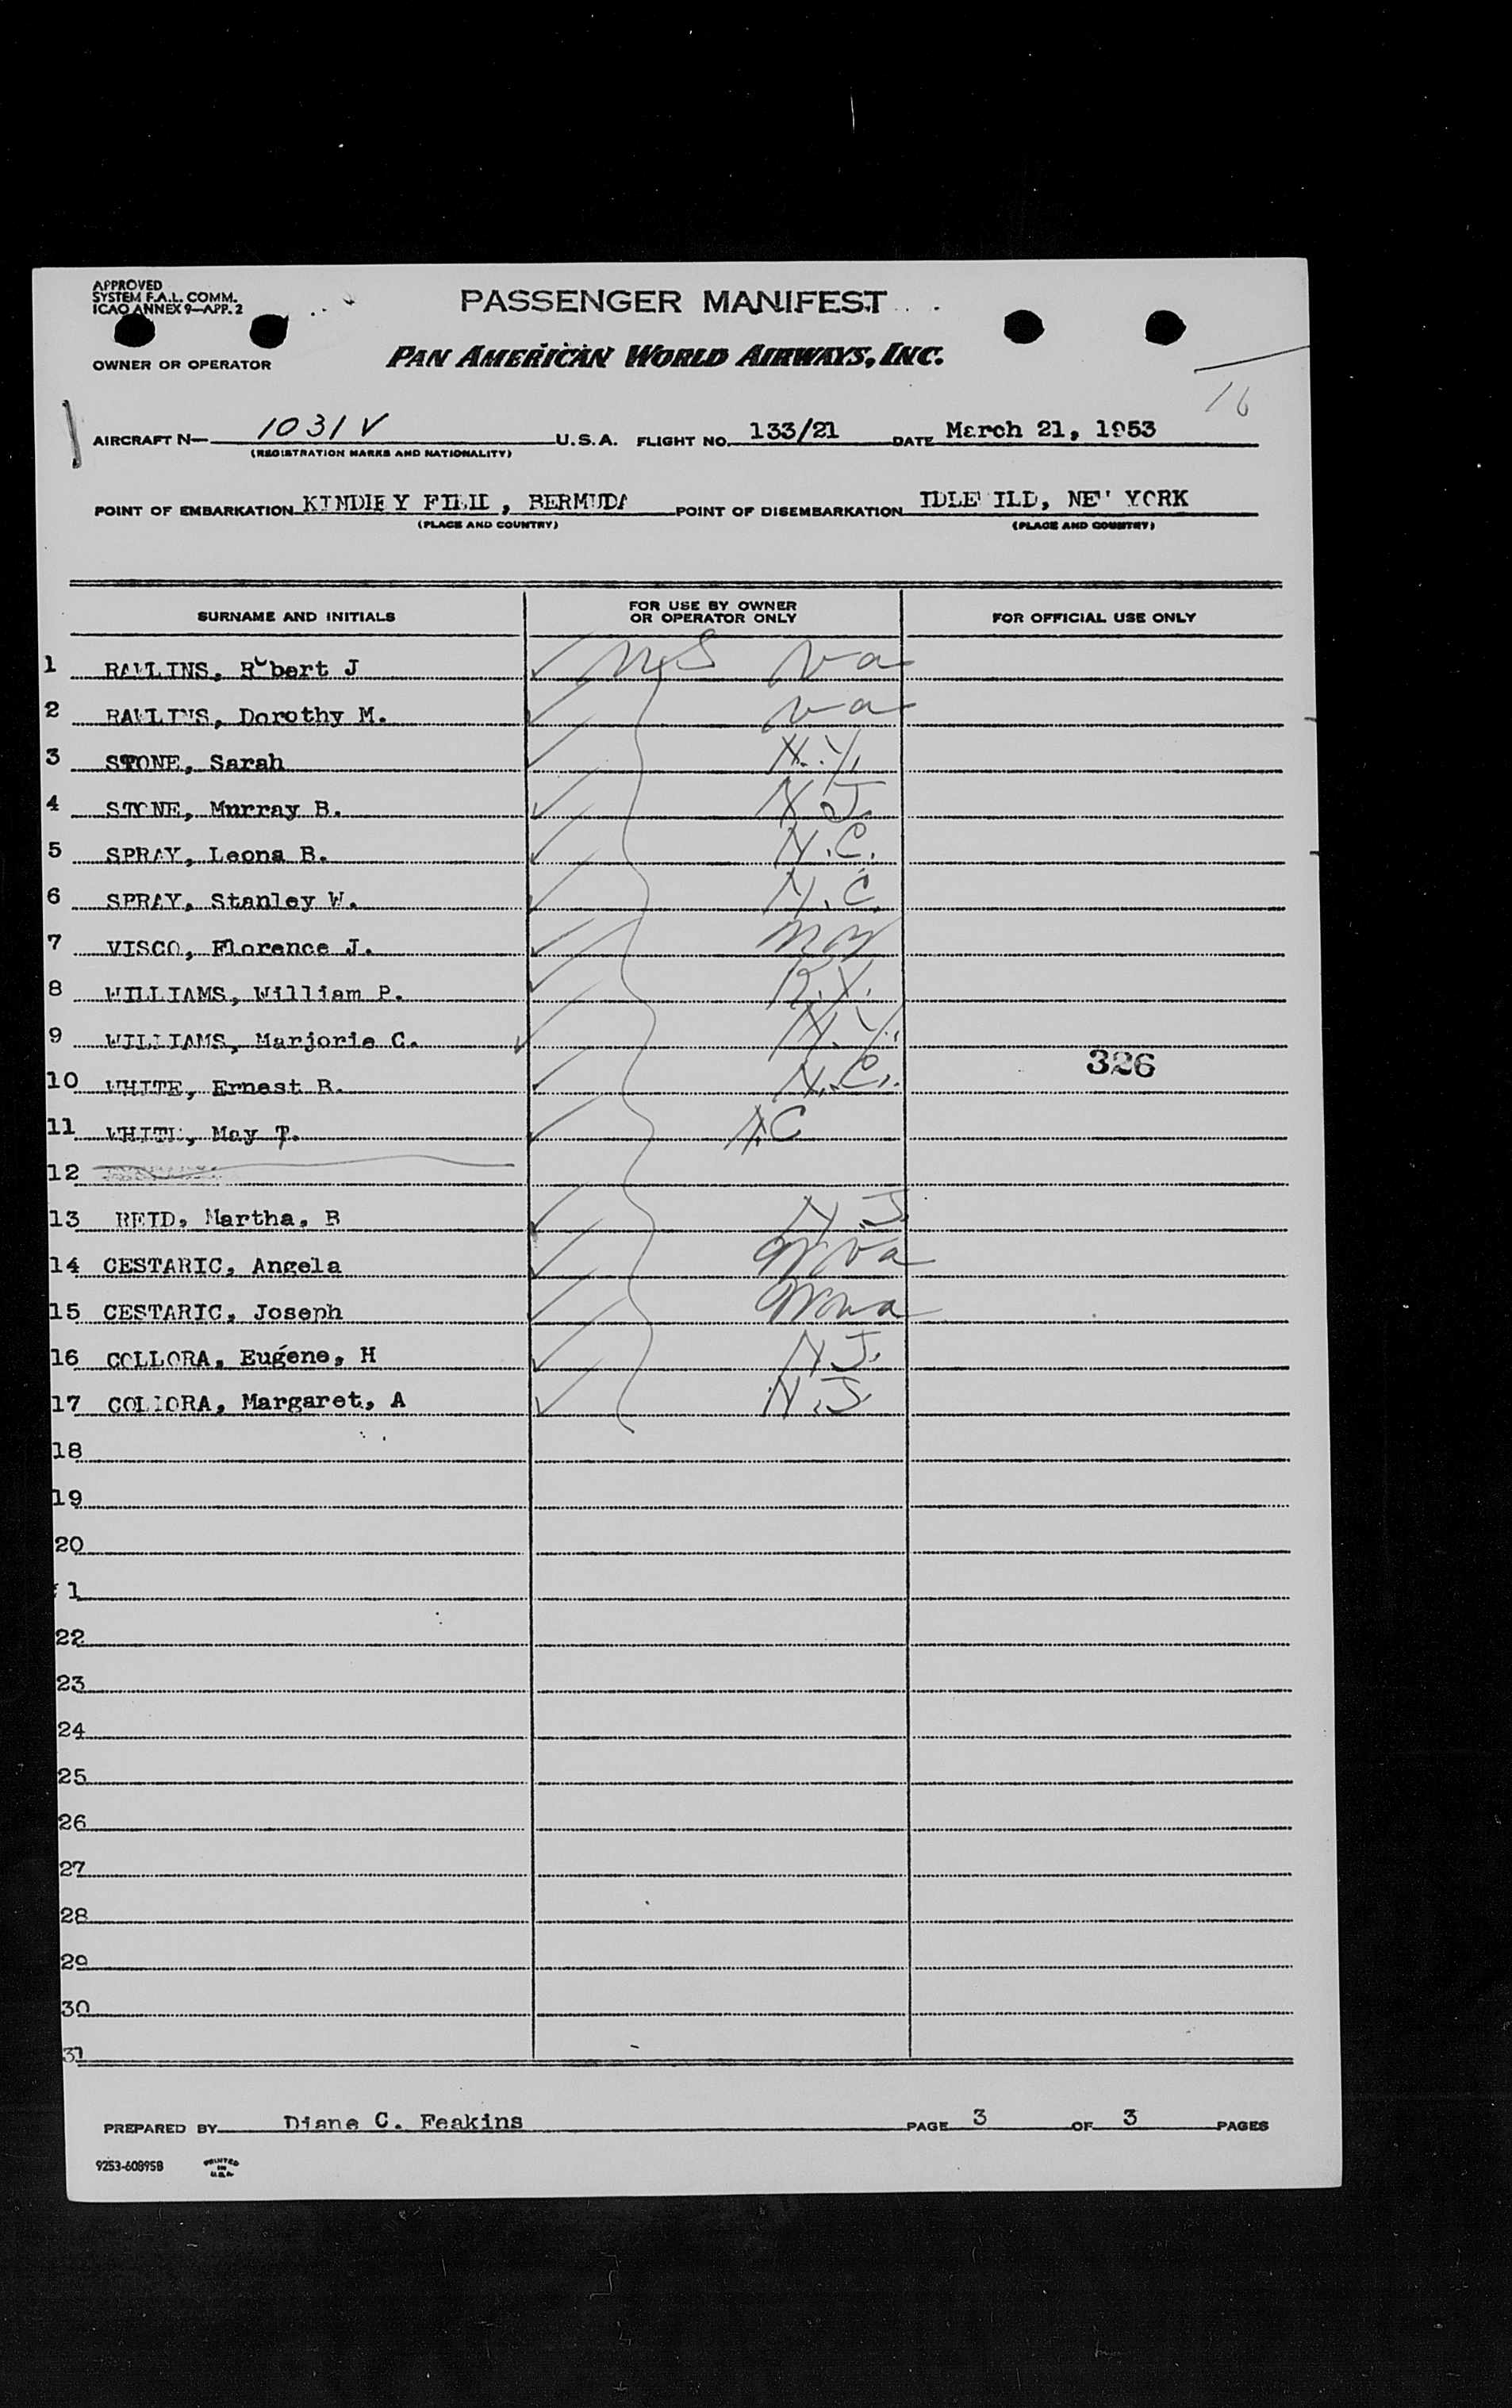 APPROVED
SYSTEM F.A.L. COMM.
ICAO ANNEX 9—APP. 2
PASSENGER MANIFEST
OWNER OR OPERATOR
PAN AMERICAN WORLD AIRWAYS, INC.
16
AIRCRAFT N— 1031V U.S.A. FLIGHT NO. 133/21 DATE March 21, 1953
(REGISTRATION MARKS AND NATIONALITY)
POINT OF EMBARKATION KINDLEY FIELD, BERMUDA POINT OF DISEMBARKATION IDLEWILD, NEW YORK
(PLACE AND COUNTRY) (PLACE AND COUNTRY)
SURNAME AND INITIALS FOR USE BY OWNER OR OPERATOR ONLY FOR OFFICIAL USE ONLY
1 RAWLINS, Robert J U.S Va
2 RAWLINS, Dorothy M. Va
3 STONE, Sarah N.Y.
4 STONE, Murray B. N J.
5 SPRAY, Leona B. N.C.
6 SPRAY, Stanley W. N.C.
7 VISCO, Florence J. NY
8 WILLIAMS, William P. N.Y.
9 WILLIAMS, Marjorie C. N.Y.
10 WHITE, Ernest R. N.C. 326
11 WHITE, May T. N.C
12
13 REID, Martha, B N.J
14 CESTARIC, Angela W Va
15 CESTARIC, Joseph W Va
16 COLLORA, Eugene, H N J.
17 COLLORA, Margaret, A N.J
18
19
20
1
22
23
24
25
26
27
28
29
30
31
PREPARED BY Diane C. Feakins PAGE 3 OF 3 PAGES
9253-60895B PRINTED IN U.S.A.